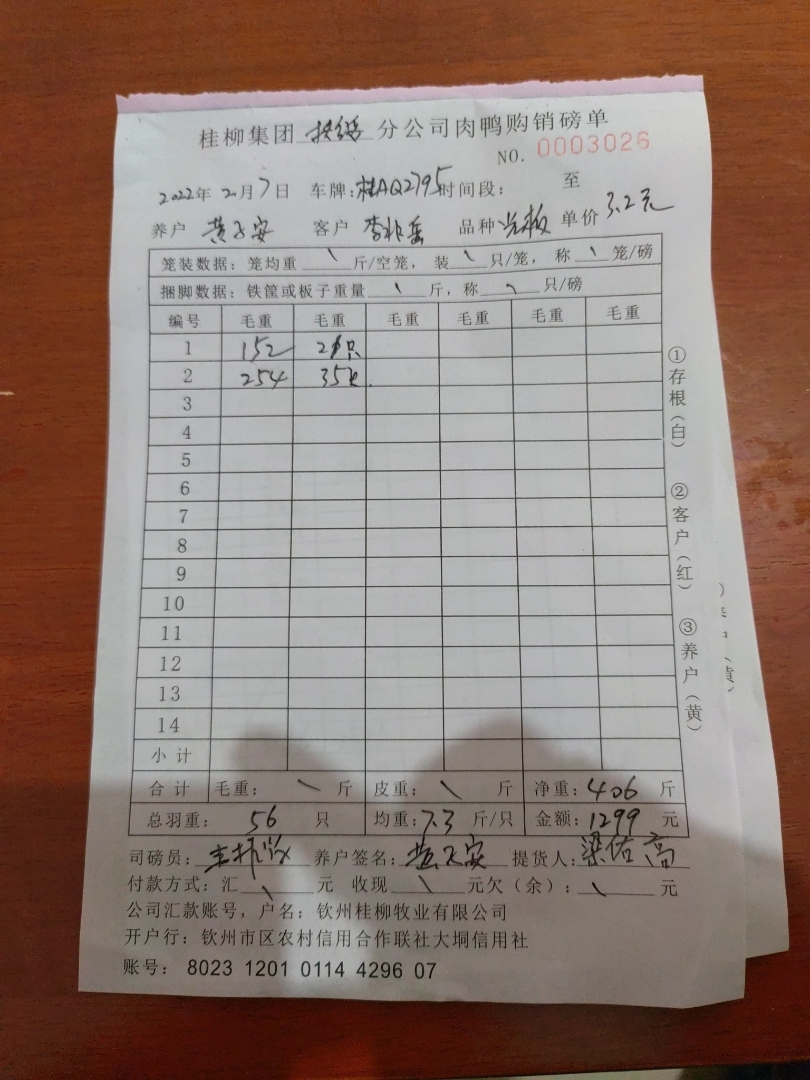 桂柳集团 分公司肉鸭购销磅单
NO. 0003026
2022年 2月7日 车牌:桂AQ2795 时间段: 至
养户 黄子安 客户 品种 光板 单价 3.2元
笼装数据: 笼均重 \ 斤/空笼, 装 \ 只/笼, 称 \ 笼/磅
捆脚数据: 铁筐或板子重量 \ 斤, 称 \ 只/磅
编号 毛重 毛重 毛重 毛重 毛重 毛重
1 152 21只
2 254 35只
3
4
5
6
7
8
9
10
11
12
13
14
小计
合计 毛重: \ 斤 皮重: \ 斤 净重: 406 斤
总羽重: 56 只 均重: 7.3 斤/只 金额: 1299 元
司磅员: 养户签名: 黄子安 提货人: 梁佑高
付款方式: 汇 \ 元 收现 \ 元 欠(余): \ 元
公司汇款账号, 户名: 钦州桂柳牧业有限公司
开户行: 钦州市区农村信用合作联社大垌信用社
账号: 8023 1201 0114 4296 07
①存根(白)
②客户(红)
③养户(黄)